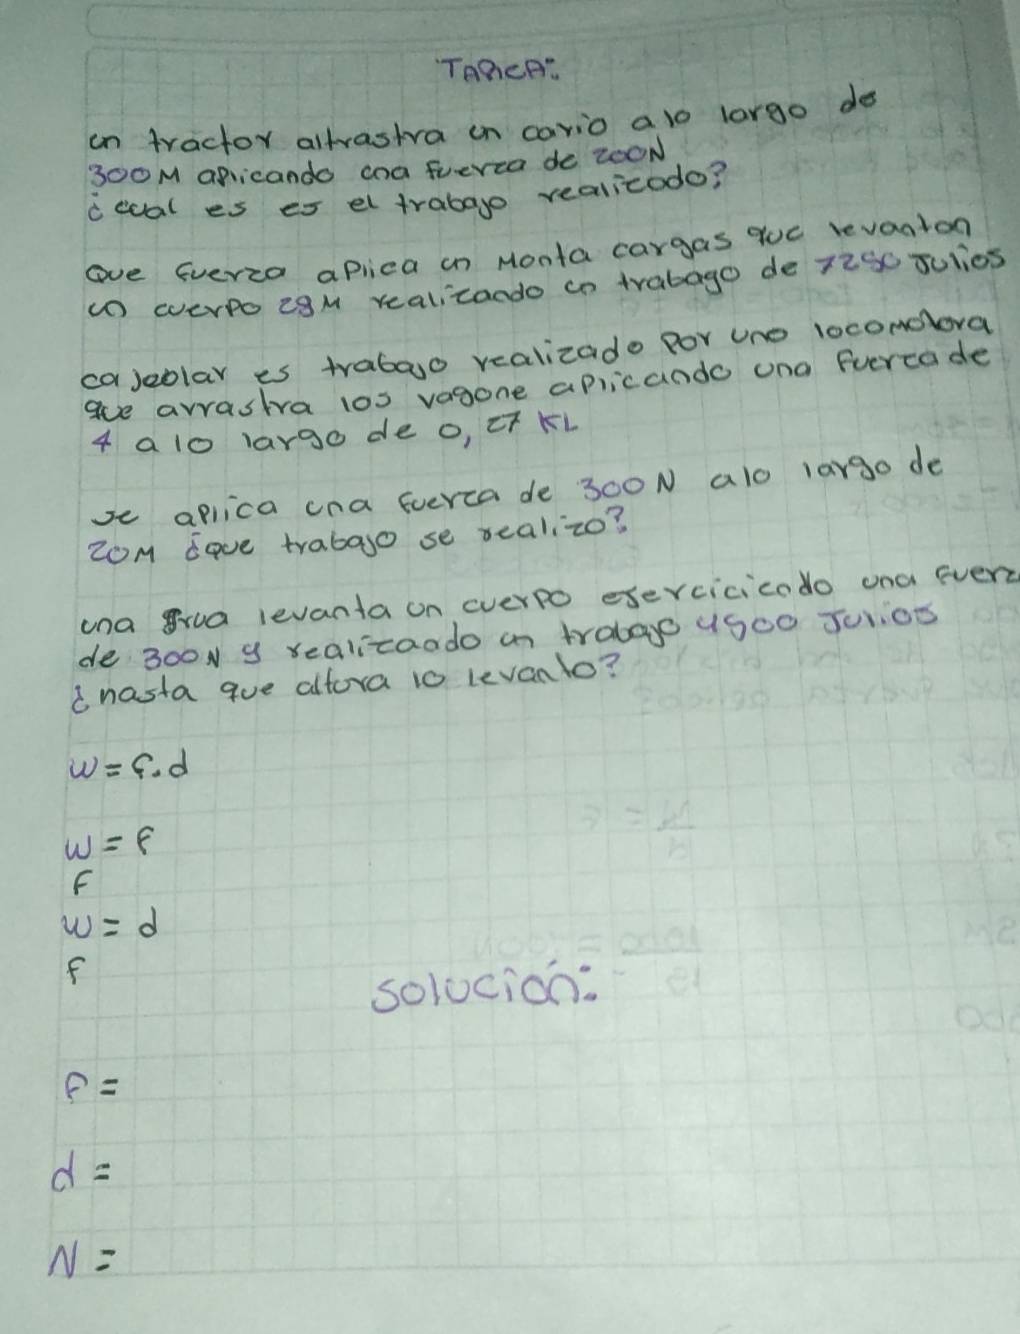 TARiCA:
un tractor altrastra un cario alo largo de
300M aplicando una fuerza de 200N
¿cual es es el trabajo realizado?
Que fuerza aplica un Monta cargas que levantan
un cuerpo 29M realizando un trabago de 7250 Julios
es trabajo realizado por uno locomotora
que arrastra los vagone aplicando una fuerza de
4 alo largo de 0,27 KL
se aplica una fuerza de 300N alo largo de
20M ¿que trabajo se realizo?
una grua levanta un cuerpo una fuerz
de 300N y realizaado un trabajo 4500 Julios
¿hasta que altura lo levanto?
W=F.d
W=F
F
W=d
F
solución:
F=
d=
N=